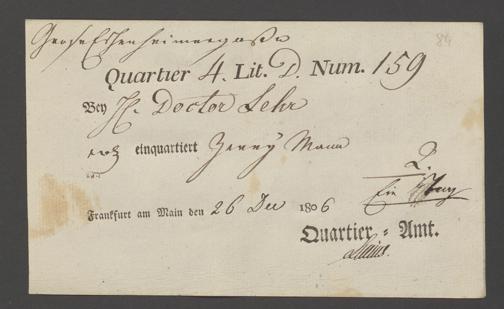 Große Eschenheimergasse
84
Quartier 4. Lit. D. Num. 159
Bey H. Doctor Lehr
einquartiert Zwey Mann
2.
Ein
Frankfurt am Main den 26 Dec 1806
Quartier-Amt.